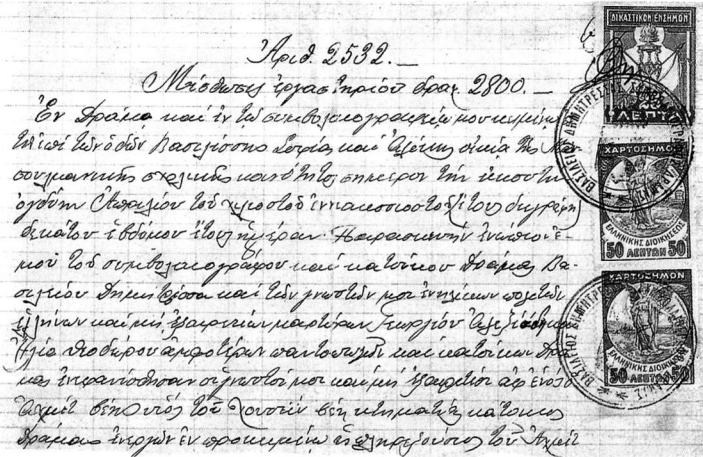 Ἀριθ. 2532._
Μίσθωσις ἐργαστηρίου δραχ. 2800._
Ἐν Δράμᾳ καὶ ἐν τῷ συμβολαιογραφείῳ μου κειμένῳ
ἐπὶ τῶν ὁδῶν Βασιλίσσης Σοφίας καὶ οἰκίᾳ τῆς Μου-
σουλμανικῆς σχολικῆς κοινότητος σήμερον τὴν εἰκοστὴν
ὀγδόην Ἀπριλίου τοῦ χιλιοστοῦ ἐννεακοσιοστοῦ
δεκάτου ἑβδόμου ἔτους ἡμέραν Παρασκευὴν ἐνώπιον ἐ-
μοῦ τοῦ συμβολαιογράφου καὶ κατοίκου Δράμας Βα-
σιλείου Δημητρέσσα καὶ τῶν γνωστῶν μοι ἐνηλίκων πολιτῶν
Ἑλλήνων καὶ μὴ ἐξαιρετέων μαρτύρων Γεωργίου
Ἠλία Θεοδώρου ἀμφοτέρων παντοπωλῶν καὶ κατοίκων Δρά-
μας ἐνεφανίσθησαν οἱ γνωστοί μοι καὶ μὴ ἐξαιρετέοι ἀφ' ἑνὸς ὁ
Ἀχμὲτ βέης υἱὸς τοῦ Χουσεΐν βέη κτηματίας κάτοικος
Δράμας ἐνεργῶν ἐν προκειμένῳ ὡς πληρεξούσιος τοῦ Ἀχμὲτ
ΔΙΚΑΣΤΙΚΟΝ ΕΝΣΗΜΟΝ
ΛΕΠΤΑ
ΧΑΡΤΟΣΗΜΟΝ
ΕΛΛΗΝΙΚΗΣ ΔΙΟΙΚΗΣΕΩΣ
50 ΛΕΠΤΩΝ 50
ΧΑΡΤΟΣΗΜΟΝ
ΕΛΛΗΝΙΚΗΣ ΔΙΟΙΚΗΣΕΩΣ
50 ΛΕΠΤΩΝ 50